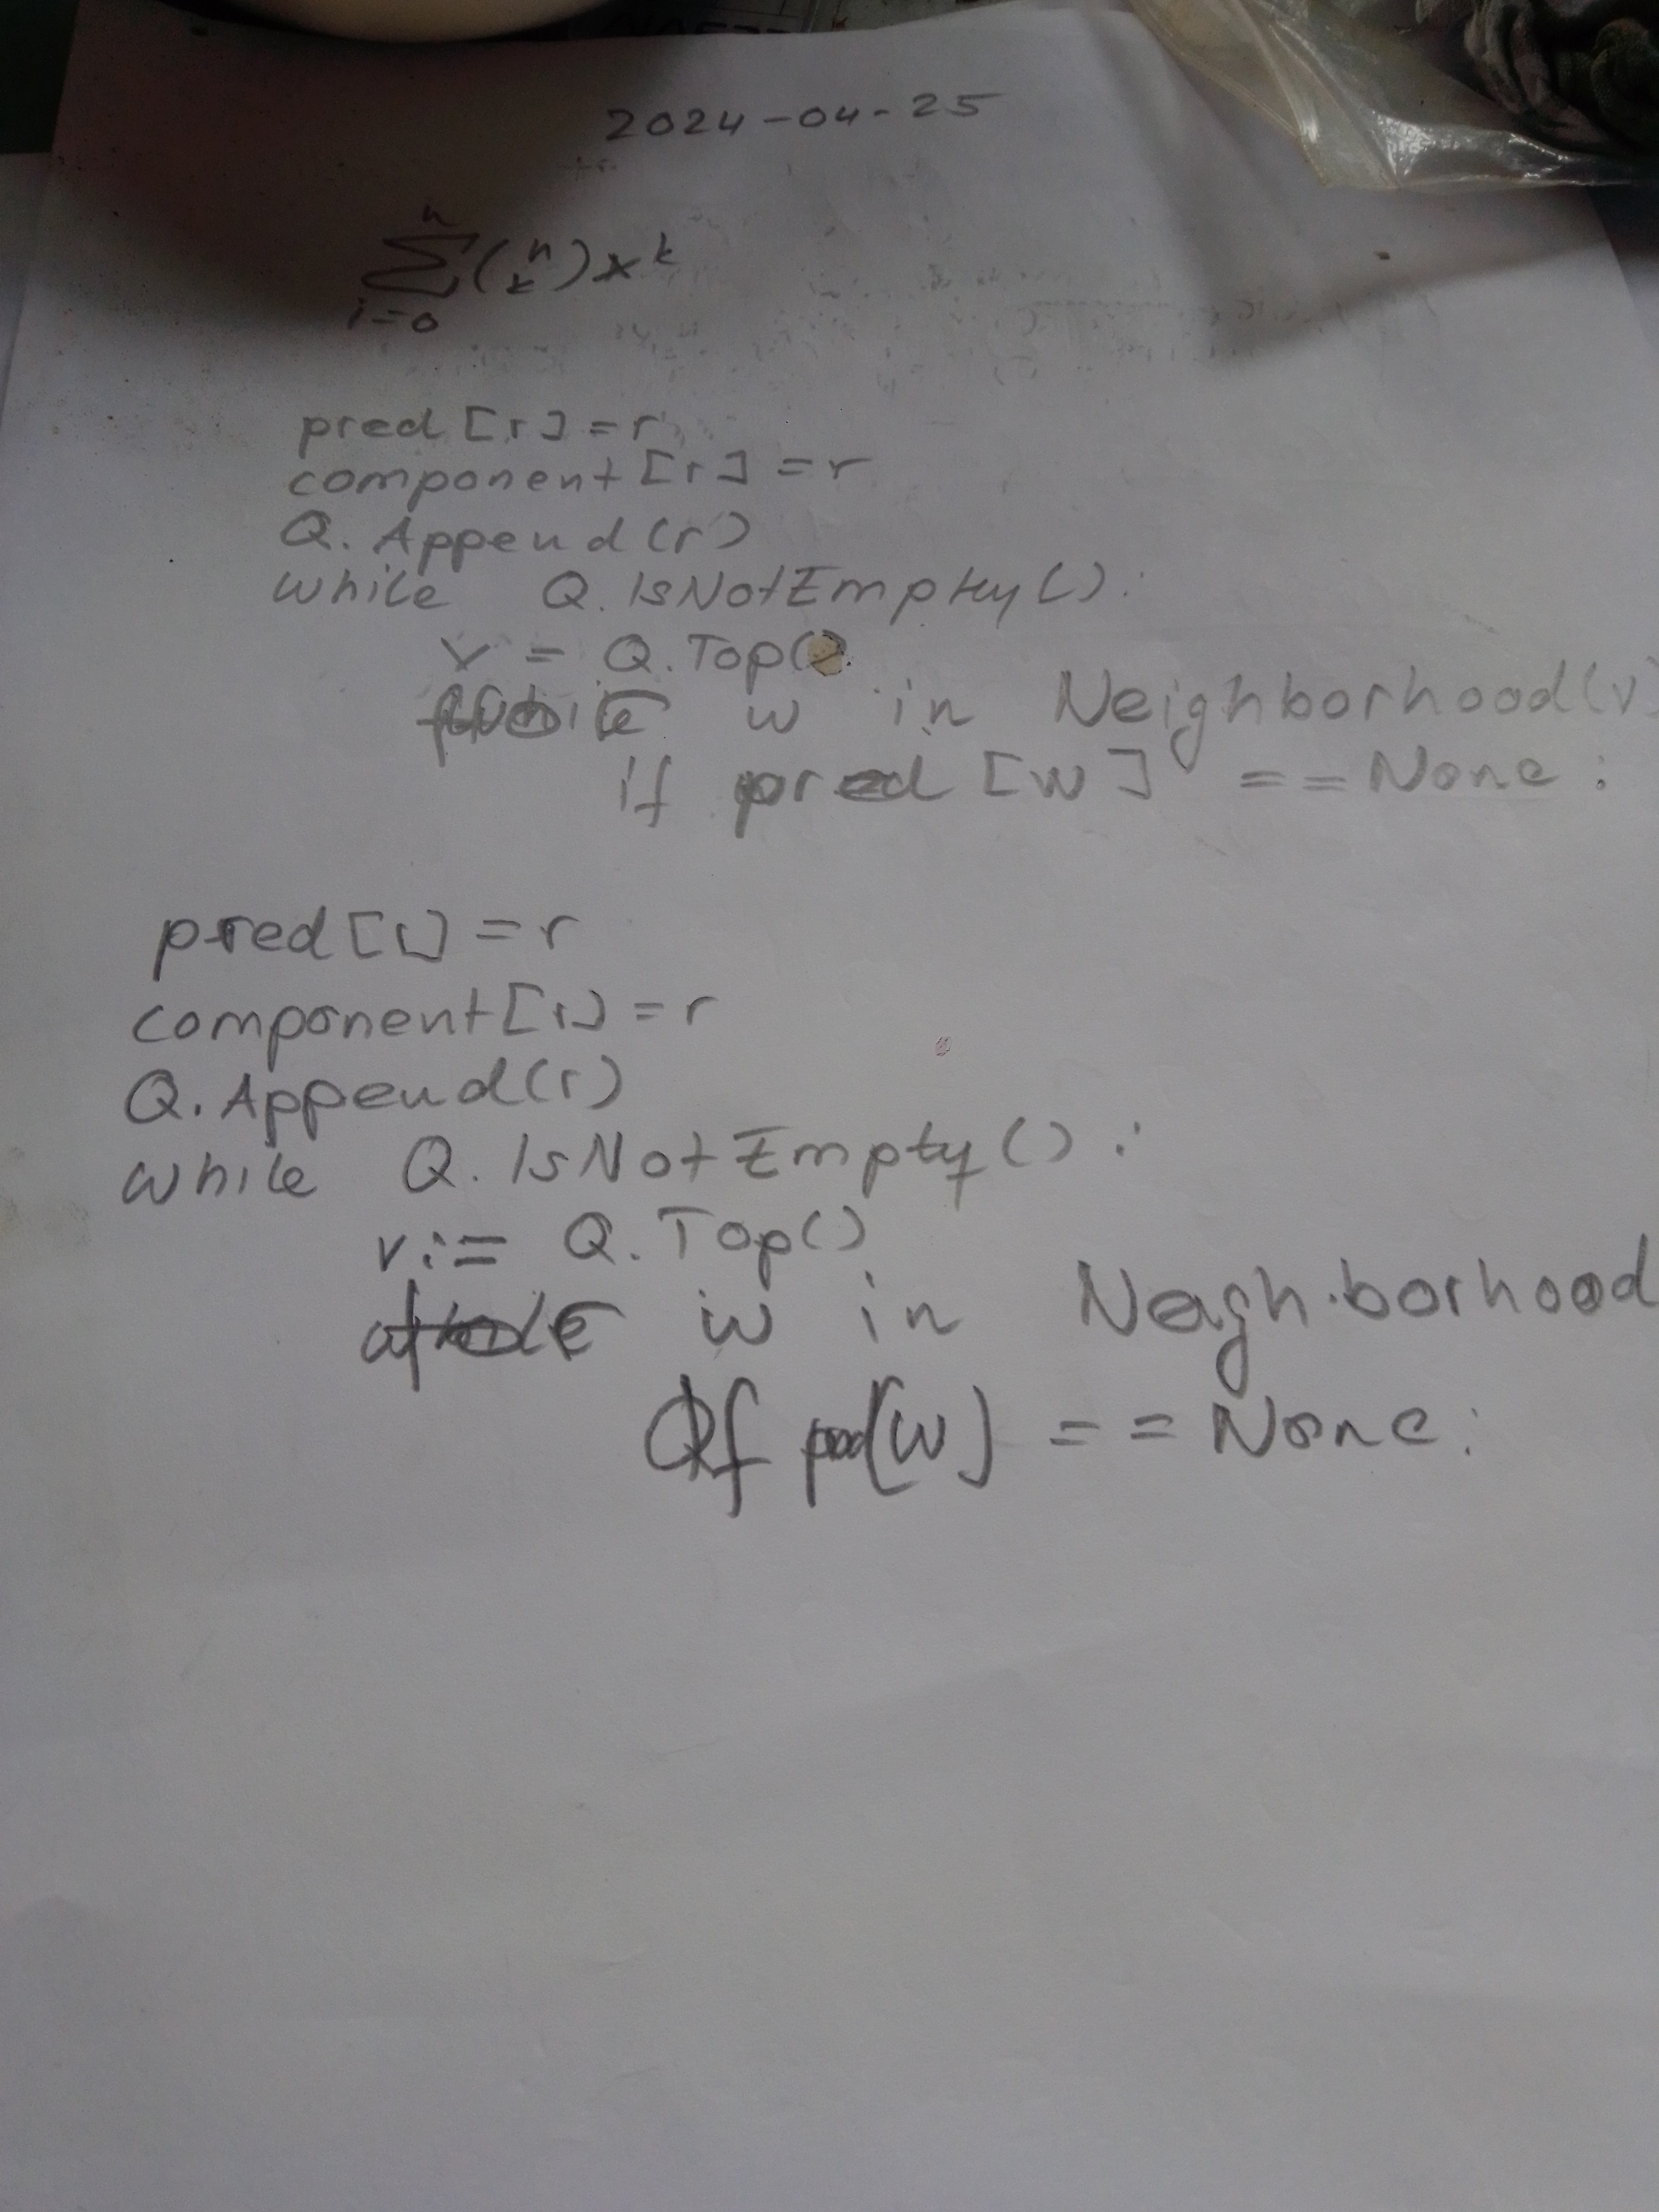 2024-04-25
n
∑ (n k) x^k
i=0
pred [r] = r
component [r] = r
Q. Append (r)
while Q. IsNotEmpty ():
v = Q. Top()
w in Neighborhood(v)
if pred [w] == None:
pred [r] = r
component [r] = r
Q. Append (r)
while Q. IsNotEmpty ():
v := Q. Top()
w in Neighborhood
if pred[w] == None: